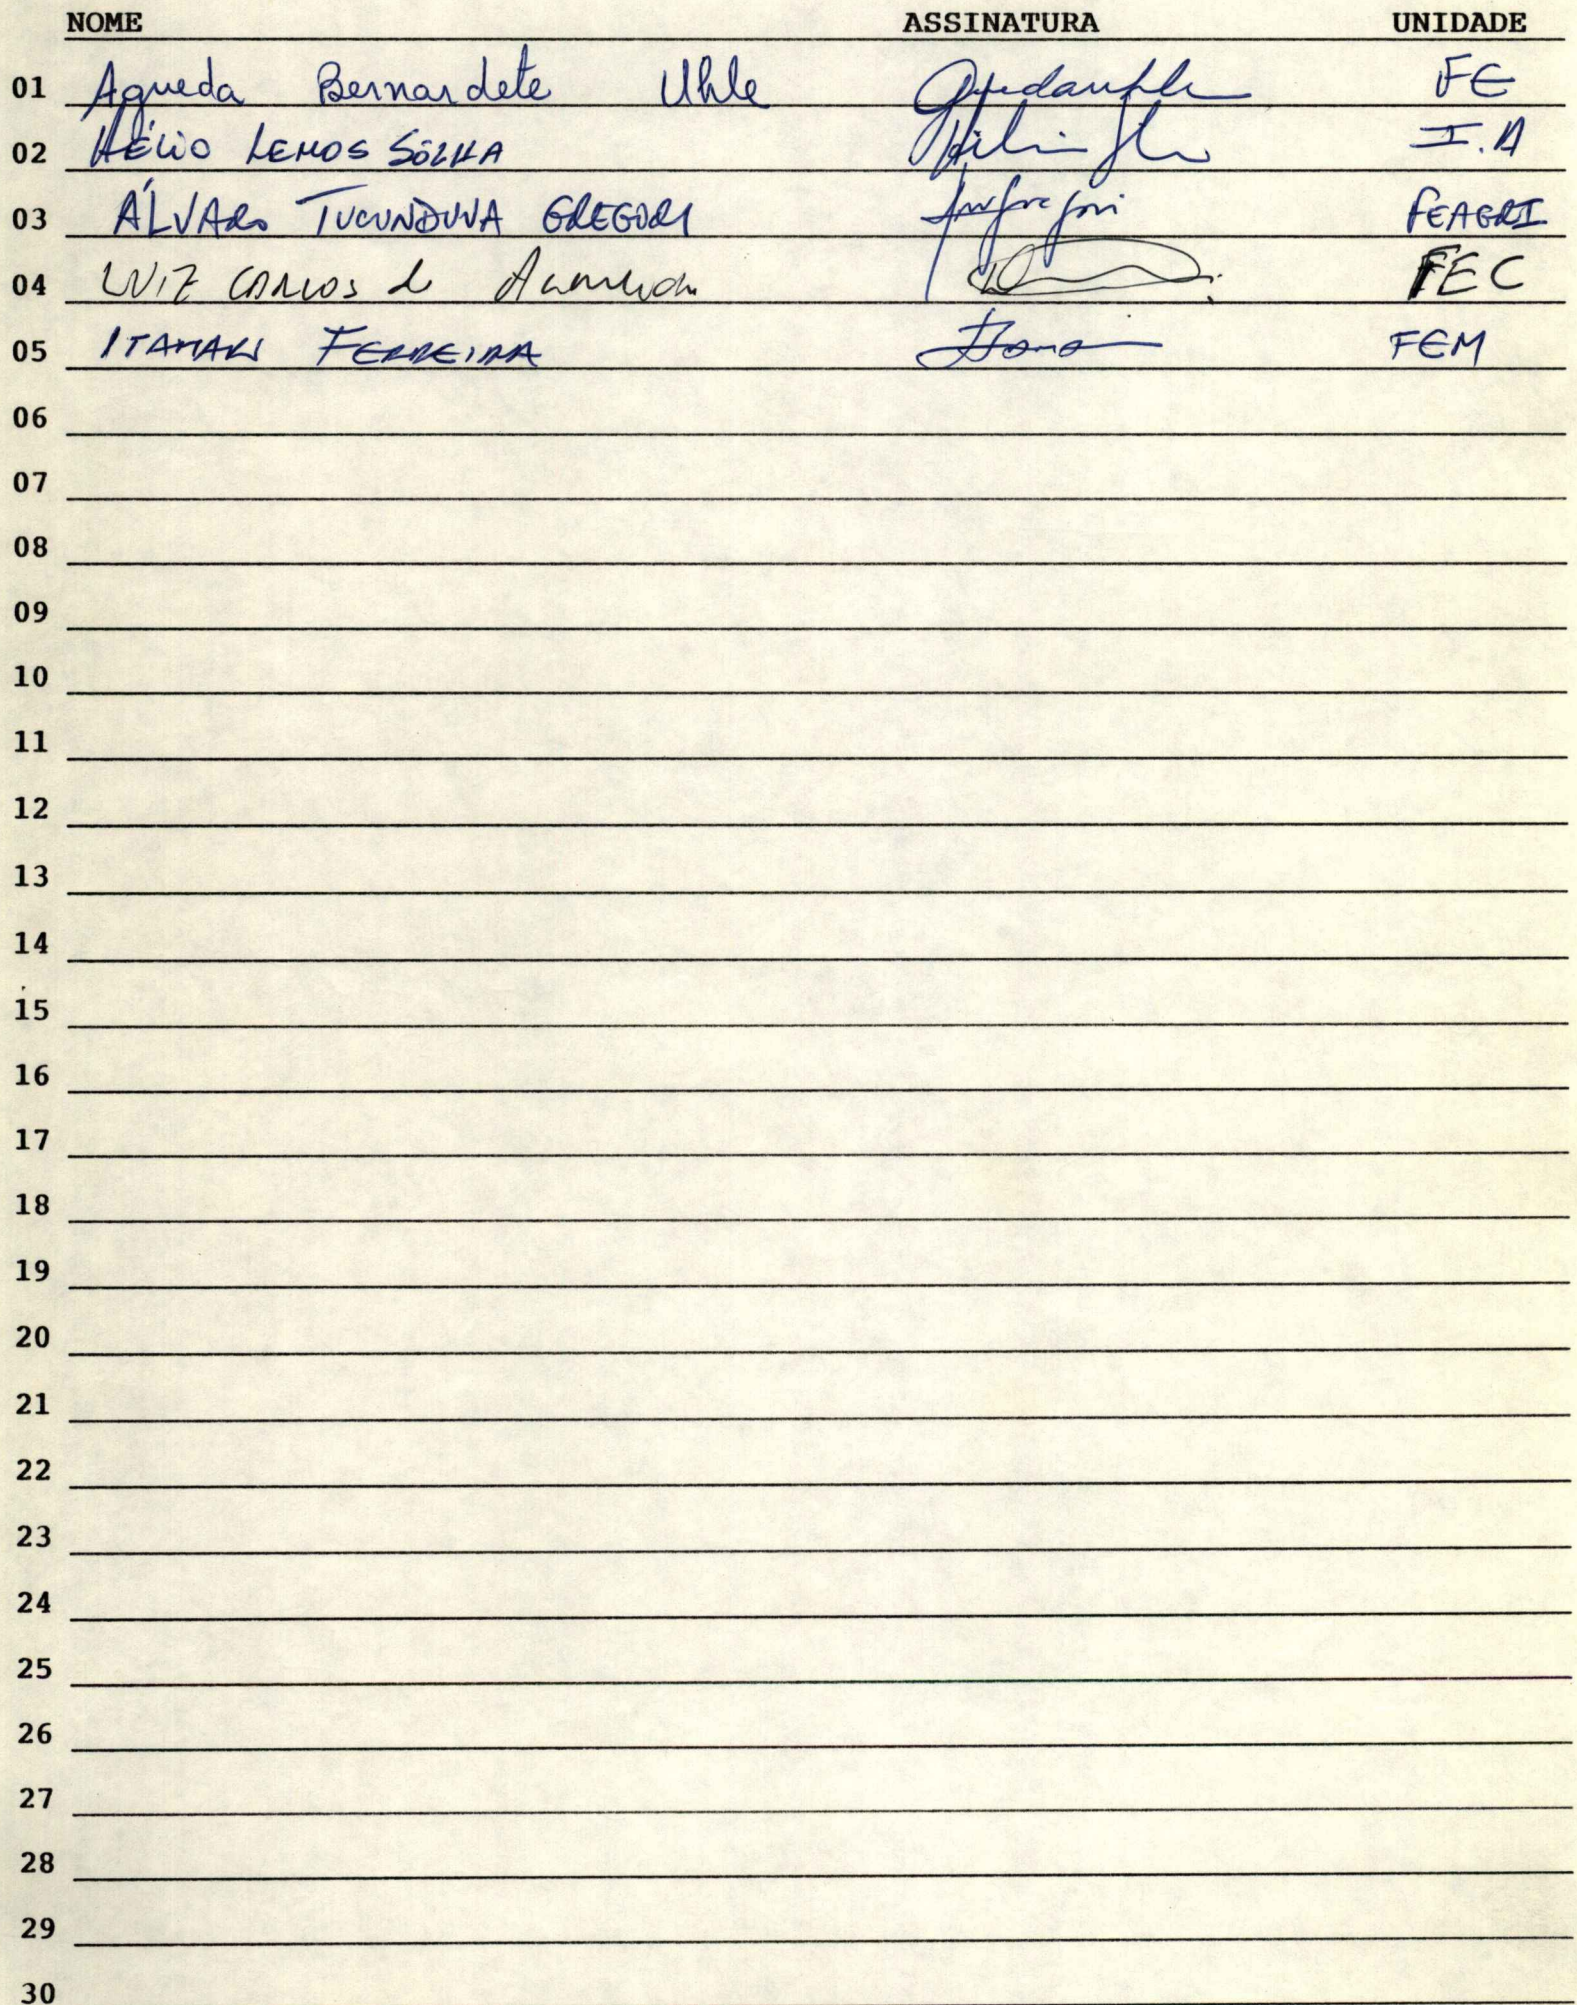 NOME ASSINATURA UNIDADE
01 Agueda Bernardete Uhle FE
02 HÉLIO LEMOS SÔLHA I.A
03 ÁLVARO TUCUNDUVA GREGORI FEAGRI
04 LUIZ CARLOS de Almeida FEC
05 ITAMAR FERREIRA FEM
06
07
08
09
10
11
12
13
14
15
16
17
18
19
20
21
22
23
24
25
26
27
28
29
30